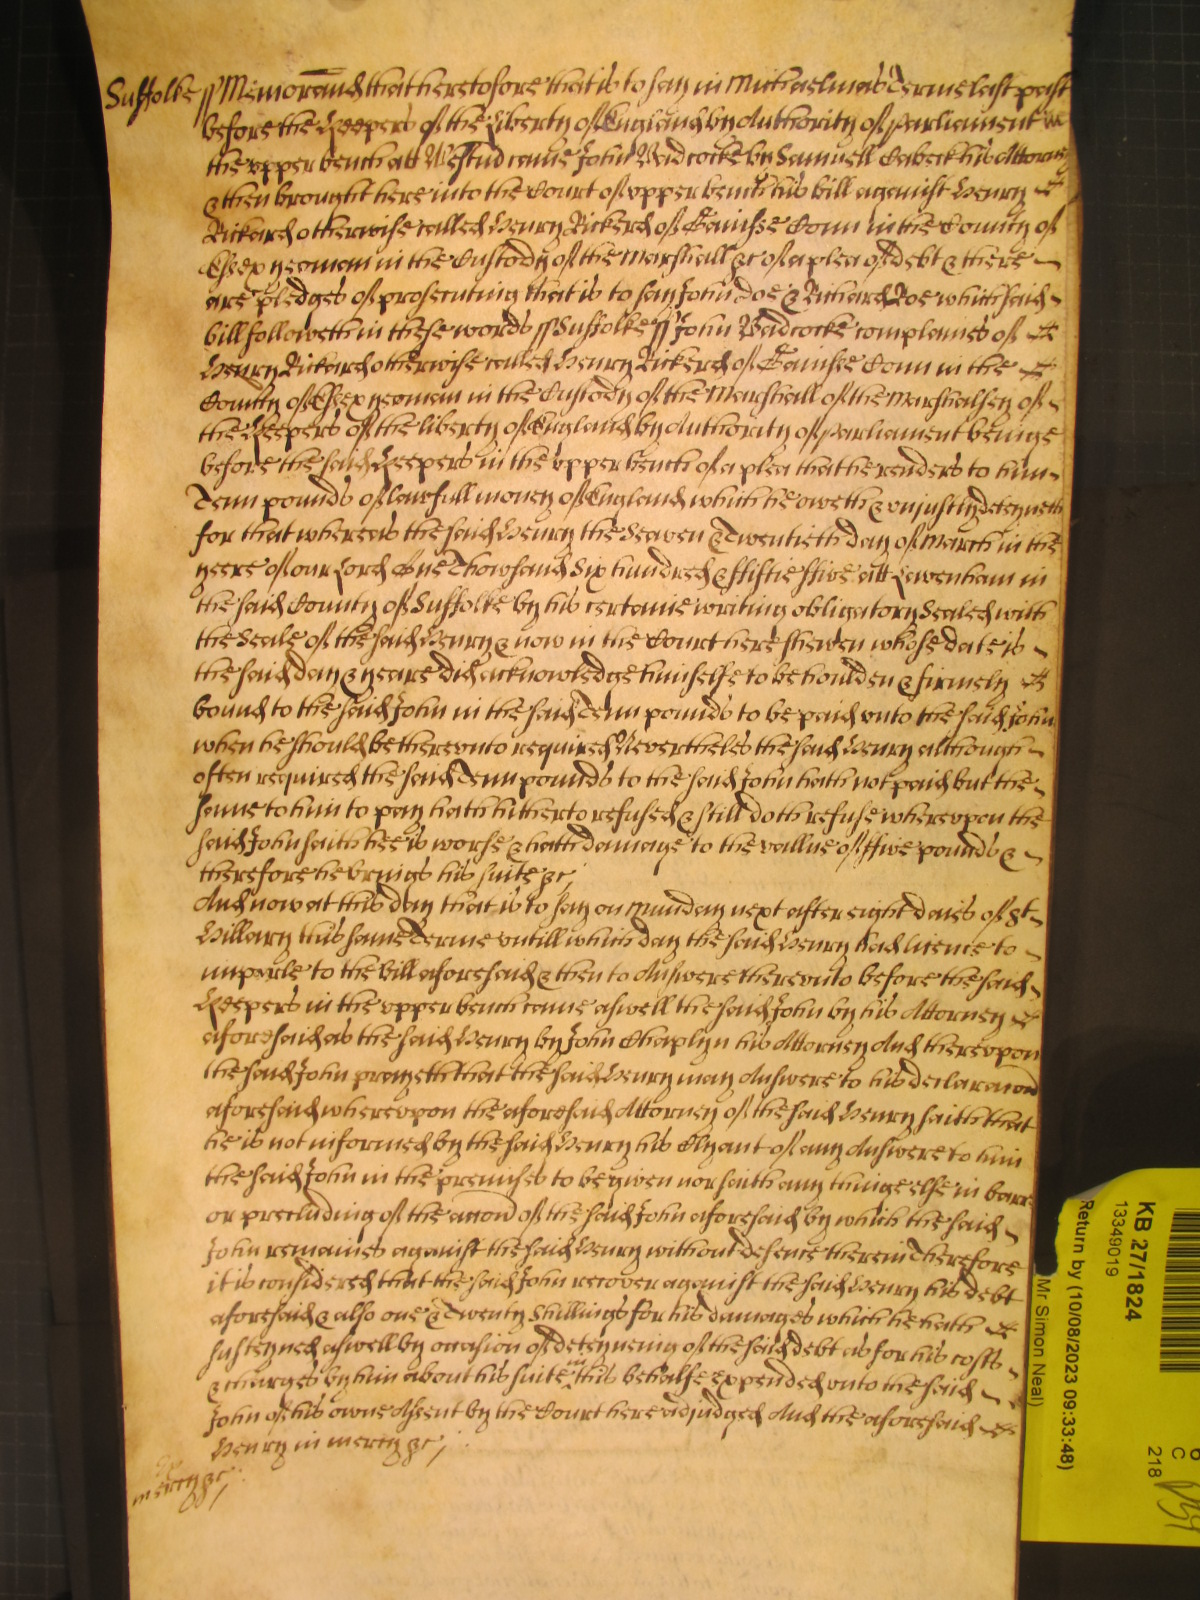 Suffolke ss Memorand that heretofore that is to say in Michaelmas Terme last past
before the Keepers of the Liberty of England by Authority of Parliament in
the upper bench att Westmr came John Badcocke by Samuell his Attorney
& then brought here into the Court of upper bench his bill against Henry
Rickard otherwise called Henry Rickerd of Conn in the County of
Essex yeoman in the Custody of the Marshall &c of a plea of debt & there
are pledges of prosecuting that is to say John Doe & Richard Roe which said
bill followeth in these words ss Suffolke ss John Badcocke complaines of
Henry Rickard otherwise called Henry Rickerd of Conn in the
County of Essex yeoman in the Custody of the Marshall of the Marshalsey of
the Keepers of the liberty of England by Authority of Parliament beinge
before the said Keepers in the upper bench of a plea that he renders to him
Tenn pounds of lawfull money of England which he oweth & unjustly deteyneth
for that whereas the said Henry the Seaven & Twentieth day of March in the
yeere of our Lord One Thowsand Six hundred & ffiftie ffive att Lavenham in
the said County of Suffolke by his certaine writing obligatory Sealed with
the Seale of the said Henry & now in the Court here shewen whose date is
the said day & yeare did acknowledge himselfe to be houlden & firmely
bound to the said John in the said Tenn pounds to be paid unto the said John
when he should be thereunto required Neverthelès the said Henry although
often required the said Tenn pounds to the said John hath not paid but the
same to him to pay hath hitherto refused & still doth refuse whereupon the
said John saith hee is worse & hath damage to the vallue of ffive pounds &
therefore he brings his suite &c
And now at this day that is to say on Munday next after eight daies of St
Hillary this same Terme untill which day the said Henry had licence to
imparle to the bill aforesaid & then to Answere thereunto before the said
Keepers in the upper bench came aswell the said John by his Attorney
aforesaid as the said Henry by John Chaplyn his Attorney And thereupon
the said John prayeth that the said Henry may Answere to his declaracon
aforesaid whereupon the aforesaid Attorney of the said Henry saith that
he is not informed by the said Henry his Clyant of any Answere to him
the said John in the premises to be given nor saith any thinge else in barr
or precluding of the accon of the said John aforesaid by which the said
John remaines against the said Henry without defence therein Therefore
it is considered that the said John recover against the said Henry his debt
aforesaid & also one & Twenty Shillings for his damages which he hath
susteyned aswell by occasion of deteyneing of the said debt as for his costs
& charges by him about his suite in this behalfe expended unto the said
John of his owne Assent by the Court here adjudged And the aforesaid
Henry in mercy &c
mercy &c
KB 27/1824
13349019
Return by (10/08/2023 09:33:48)
Mr Simon Neal)
6
C
218